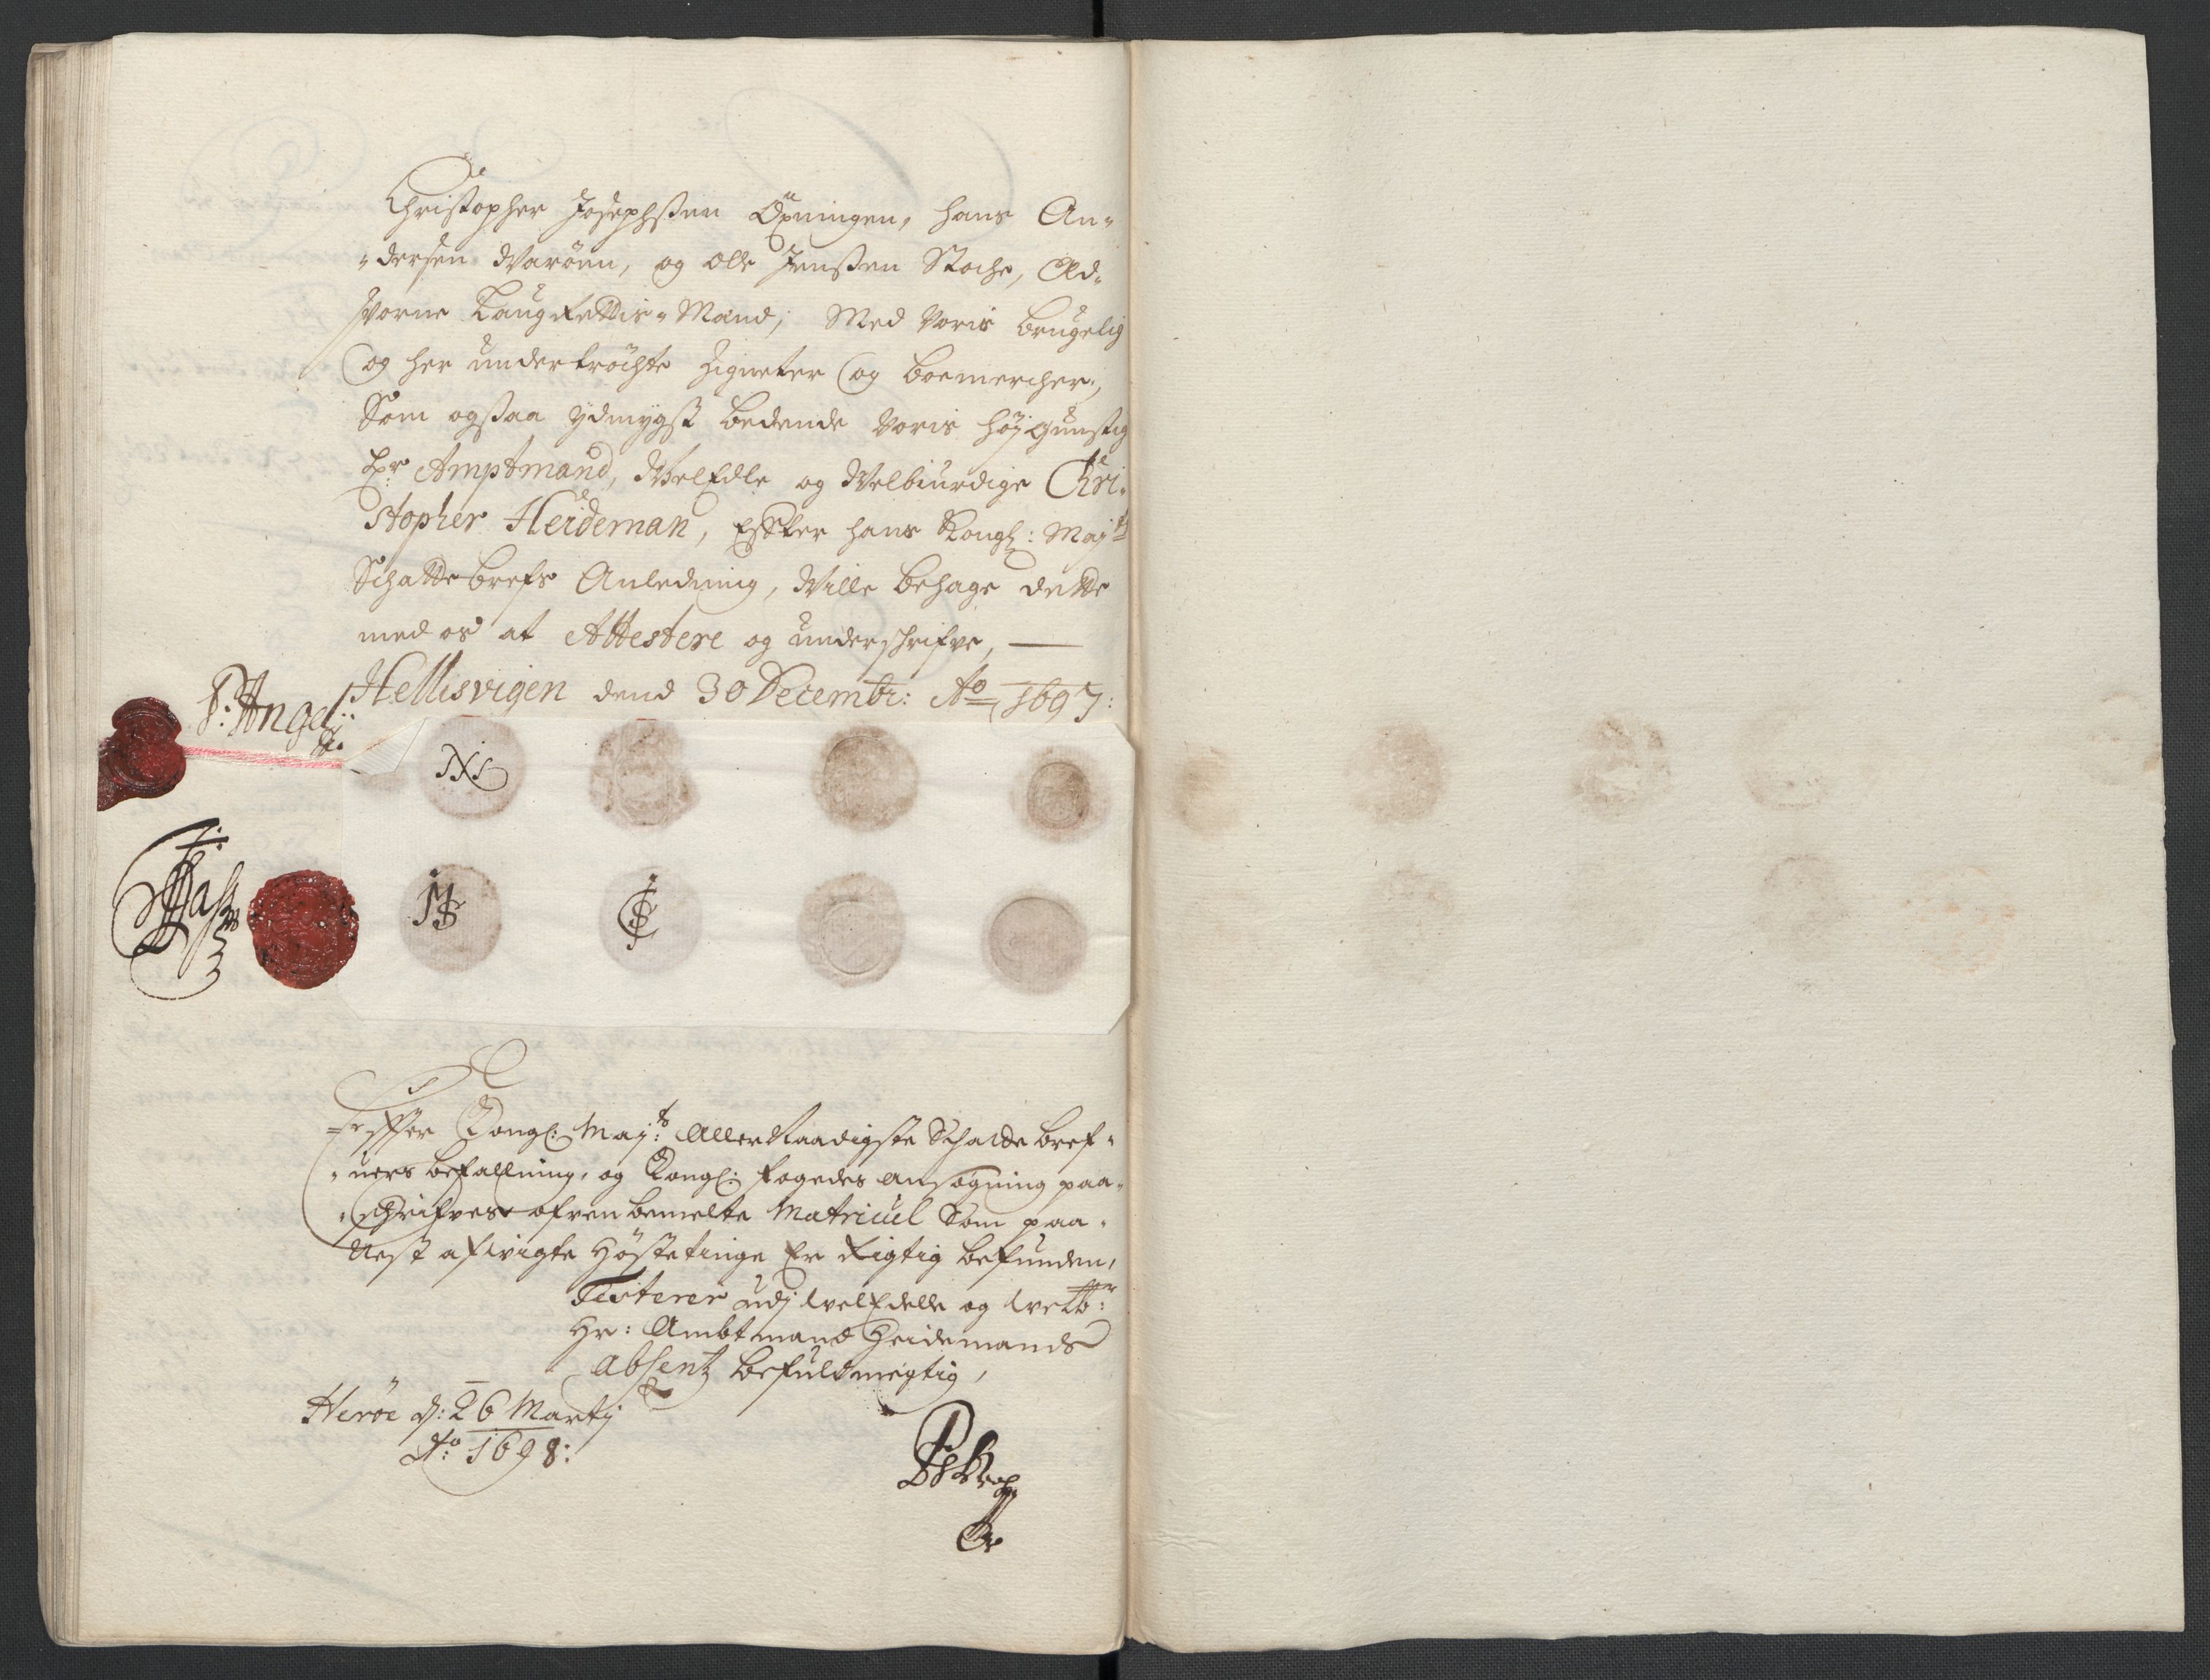 Christopher Josephsen Öxningen, Hans An-
-dersen Waröen, og Olle Jenssen Stoche, Æd-
svorne Laugrettis-Mænd; Med voris brugelig
og her undertröchte Zigneter og boemercher,
Som ogsaa ydmygst bedende voris höjgunstig
Hr: Amptmand, WelEdle og Welbiurdige Chri-
stopher Heideman, Effter hans Kongl: Majts
Schattebrefs Anledning, Wille behage dette
med os at Attestere og underschrifve,
Hellisvigen dend 30 Decembr: Ao 1697:
P: Angel
SXS
MS
CS
Effter Kongl: Majts: Allernaadigste Schatte bref-
-uers befallning, og Kongl: fogedes ansøgning paa-
-schrifves ofvenbemelte Matricul Som paa-
Nest afvigte Høstetinge Er Rigtig befunden,
Testerer udj WelEdelle og Welb:r
Hr: Ambtmand Heidemands
absentz befuldmegtig,
Heröe d: 26 Martij
Ao: 1698: